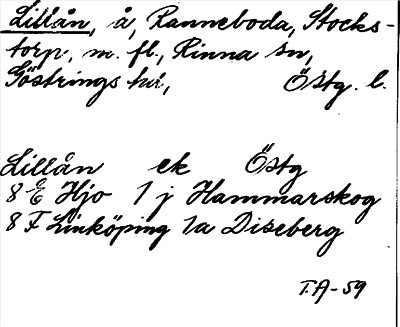 Lillån, å, Ranneboda, Stocks-
torp, m. fl., Rinna sn,
Göstrings hd, Östg. l.
Lillån ek Östg
8 E Hjo 1 j Hammarskog
8 F Linköping 1a Diseberg
T.A-59